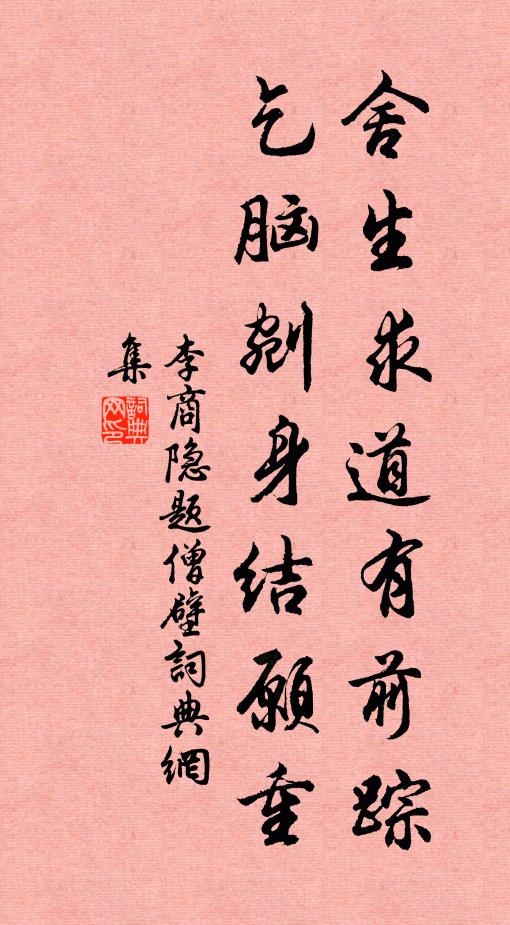 舍生求道有前踪
乞脑剜身结愿重
李商隐题僧壁詞典網
集
詞典
网印